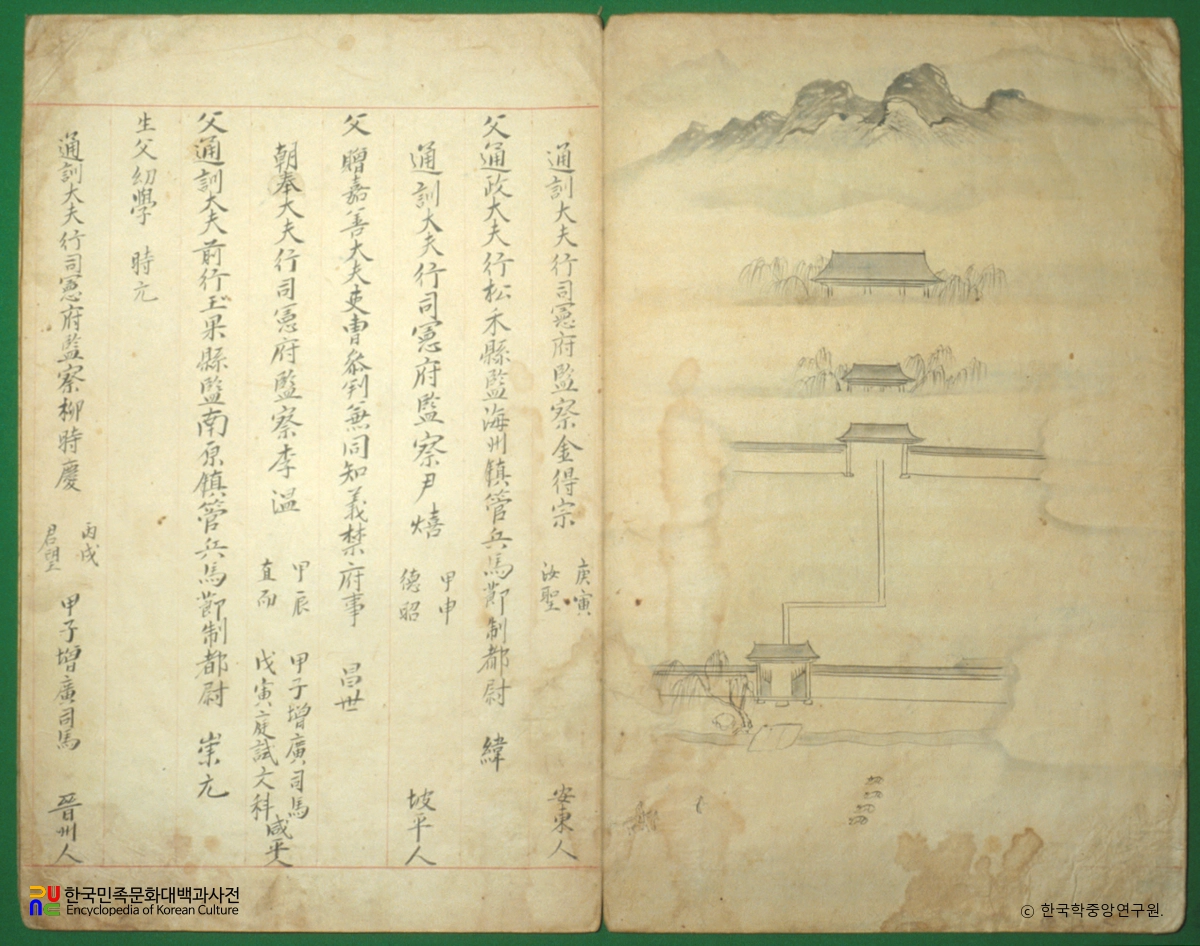 通訓大夫行司憲府監察金得宗 庚寅 汝聖 安東人
父通政大夫行松禾縣監海州鎮管兵馬節制都尉 緯
通訓大夫行司憲府監察尹熺 甲申 德昭 坡平人
父 贈嘉善大夫吏曹參判兼同知義禁府事 昌世
朝奉大夫行司憲府監察李溫 甲辰 直而 甲子增廣司馬 戊寅庭試文科 咸平人
父通訓大夫前行玉果縣監南原鎮管兵馬節制都尉 崇元
生父幼學 時元
通訓大夫行司憲府監察柳時慶 丙戌 君望 甲子增廣司馬 晉州人
한국민족문화대백과사전
Encyclopedia of Korean Culture
ⓒ 한국학중앙연구원.